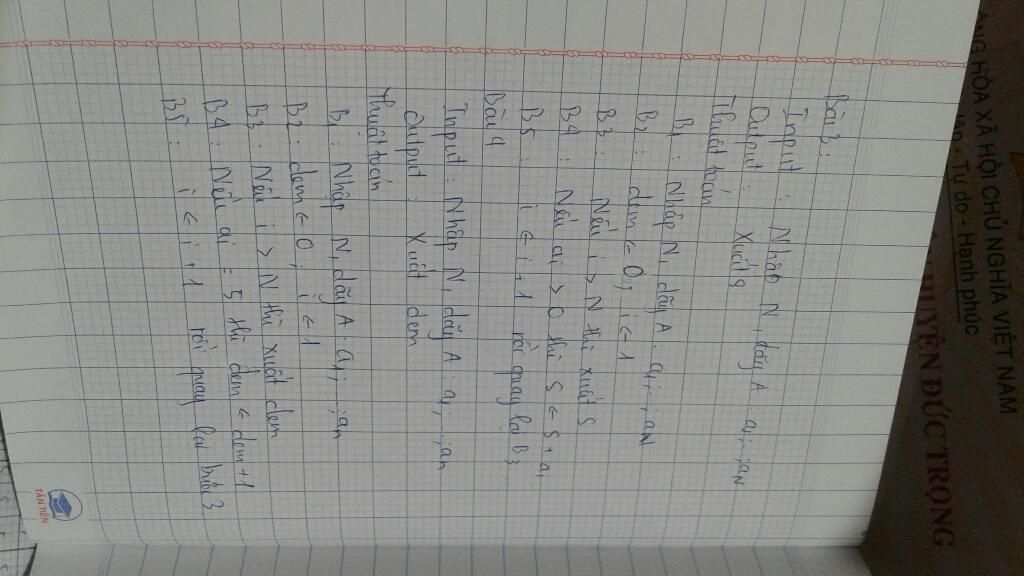 Bài 3:
Input : Nhập N, dãy A : a1; ...; aN
Output : Xuất S
Thuật toán
B1 : Nhập N, dãy A : a1; ...; aN
B2 : dem ← 0; i ← 1
B3 : Nếu i > N thì xuất S
B4 : Nếu ai > 0 thì S ← S + ai
B5 : i ← i + 1 rồi quay lại B3
Bài 4
Input : Nhập N, dãy A : a1; ...; an
Output : Xuất dem
Thuật toán
B1 : Nhập N, dãy A : a1; ...; an
B2 : dem ← 0; i ← 1
B3 : Nếu i > N thì xuất dem
B4 : Nếu ai = 5 thì dem ← dem + 1
B5 : i ← i + 1 rồi quay lại bước 3
TÂN TIẾN
HÒA XÃ HỘI CHỦ NGHĨA VIỆT NAM
Tự do - Hạnh phúc
HUYỆN ĐỨC TRỌNG